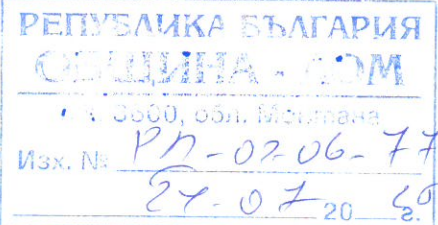 РЕПУБЛИКА БЪЛГАРИЯ
ОБЩИНА - ЛОМ
3600, обл. Монтана
Изх. № РД-02-06-77
07 20 г.